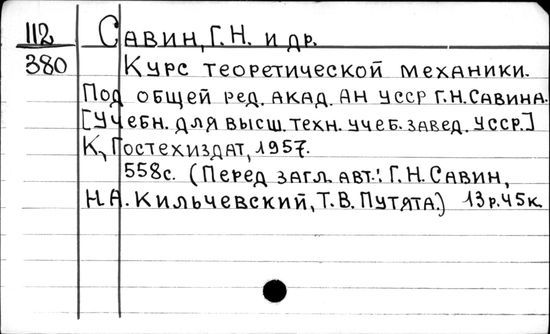 112 Савин, Г.Н. и др.
380 Курс теоретической механики.
Под общей ред. акад. АН УССР Г.Н. Савина.
[Учебн. для высш. техн. учеб. завед. УССР.]
К., Гостехиздат, 1957.
558с. (Перед загл. авт.: Г.Н. Савин,
Н.А. Кильчевский, Т.В. Путята.) 13р.45к.